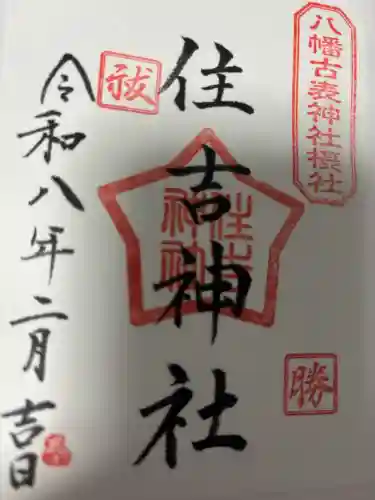 八幡古表神社摂社
住吉神社
祓
勝
令和八年二月吉日